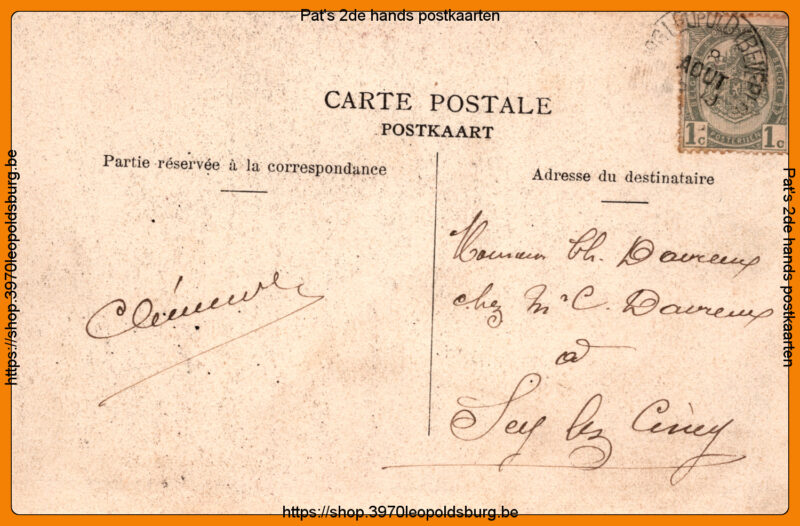 Pat's 2de hands postkaarten
LEOPOLD (BEVERLOO
8
AOUT
CARTE POSTALE
POSTKAART
1c 1c
Partie réservée à la correspondance
Adresse du destinataire
Monsieur Ch. Davreux
chez Mr C. Davreux
à
Sey lez Ciney
https://shop.3970leopoldsburg.be
Pat's 2de hands postkaarten
https://shop.3970leopoldsburg.be